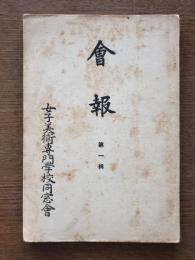 會報
第一輯
女子美術専門学校同窓會